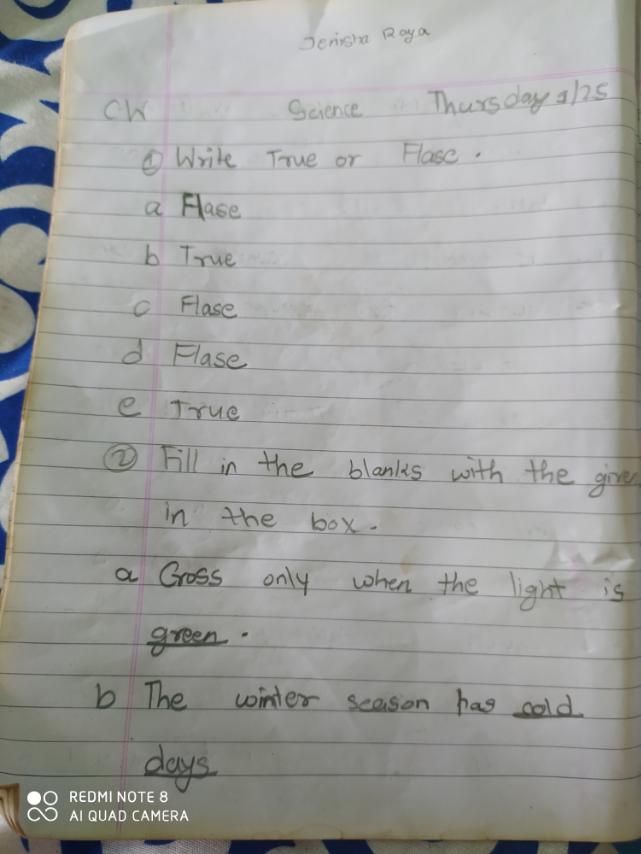 Jenisha Raya
CW Science Thursday 2/25
① Write True or Flase.
a Flase
b True
c Flase
d Flase
e True
② Fill in the blanks with the given
in the box.
a Cross only when the light is
green.
b The winter season has cold
days
REDMI NOTE 8
AI QUAD CAMERA